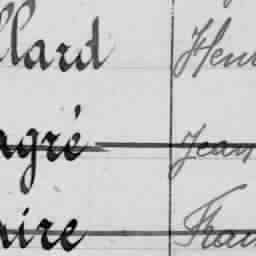 llard Henr
agré Jean
aire Fran